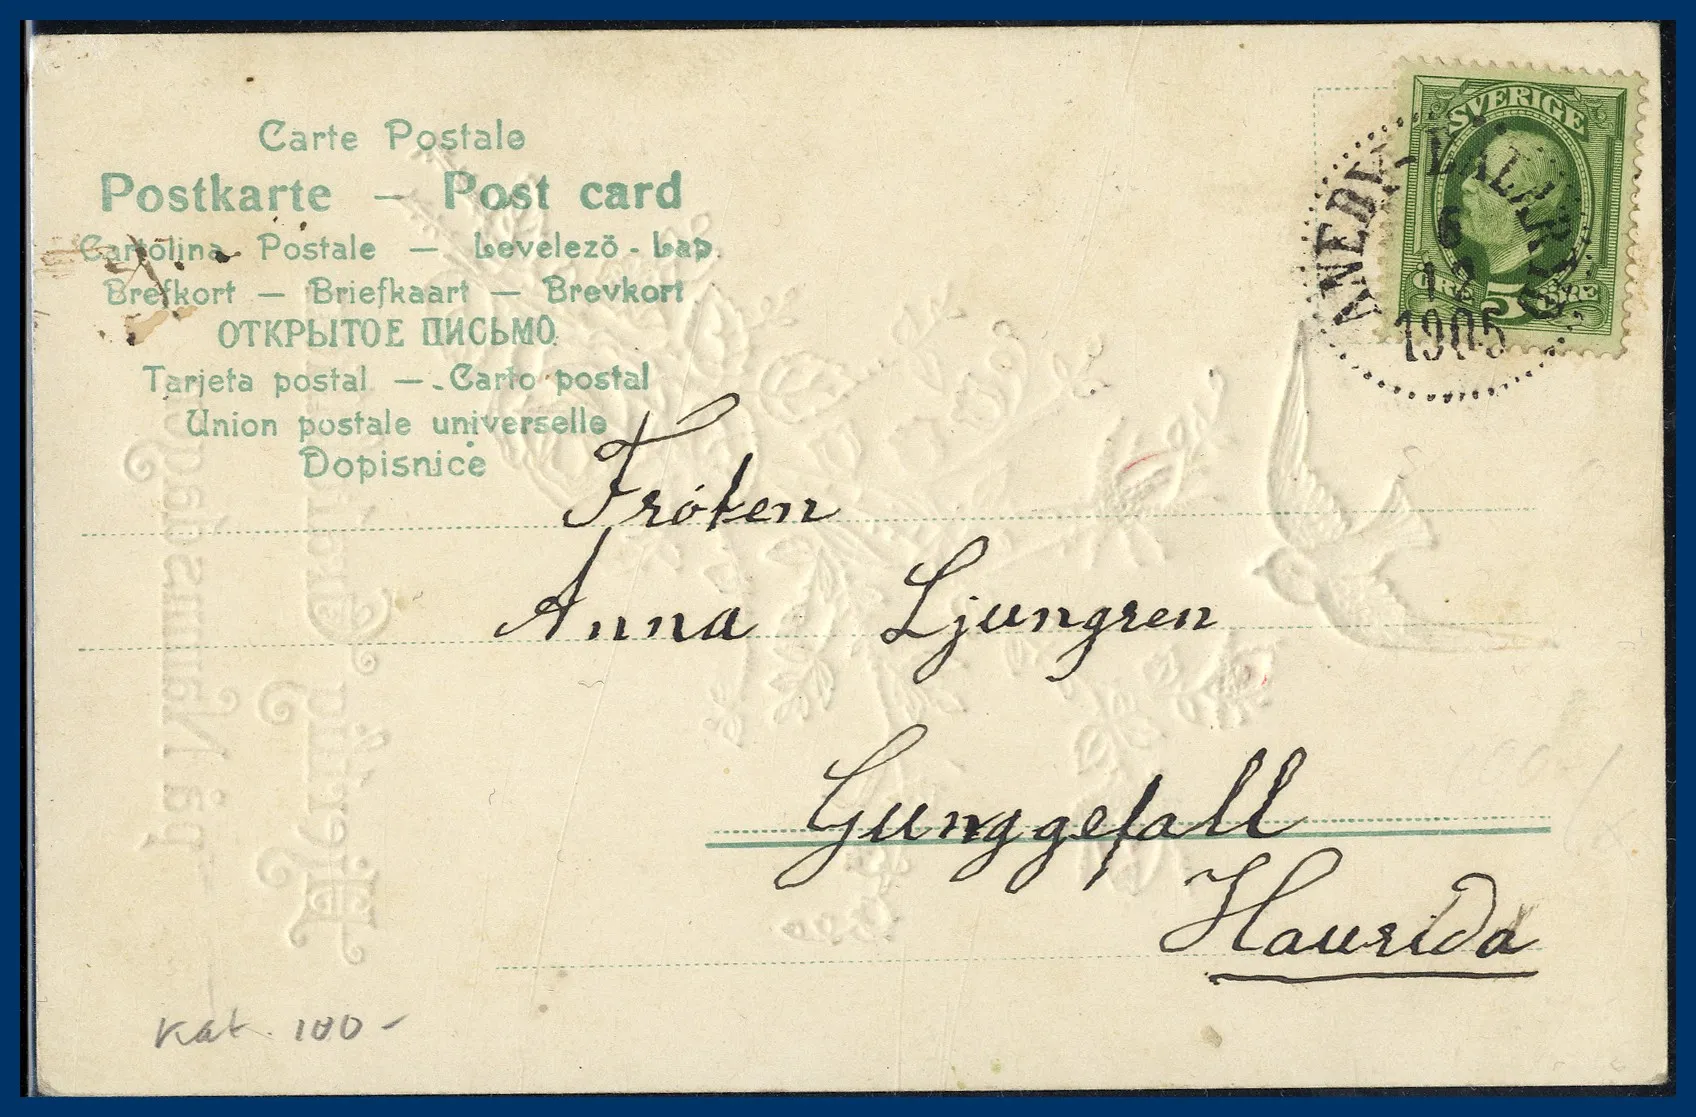 Carte Postale
Postkarte — Post card
Cartolina Postale — Levelezö - Lap.
Brefkort — Briefkaart — Brevkort
ОТКРЫТОЕ ПИСЬМО.
Tarjeta postal — Carto postal
Union postale universelle
Dopisnice
SVERIGE
ÖRE 5 ÖRE
ANEBY-LALARYD
6
12
1905
Fröken
Anna Ljungren
Gunggefall
Haurida
Kat. 100-
Hjertlig
på Namnsdagen